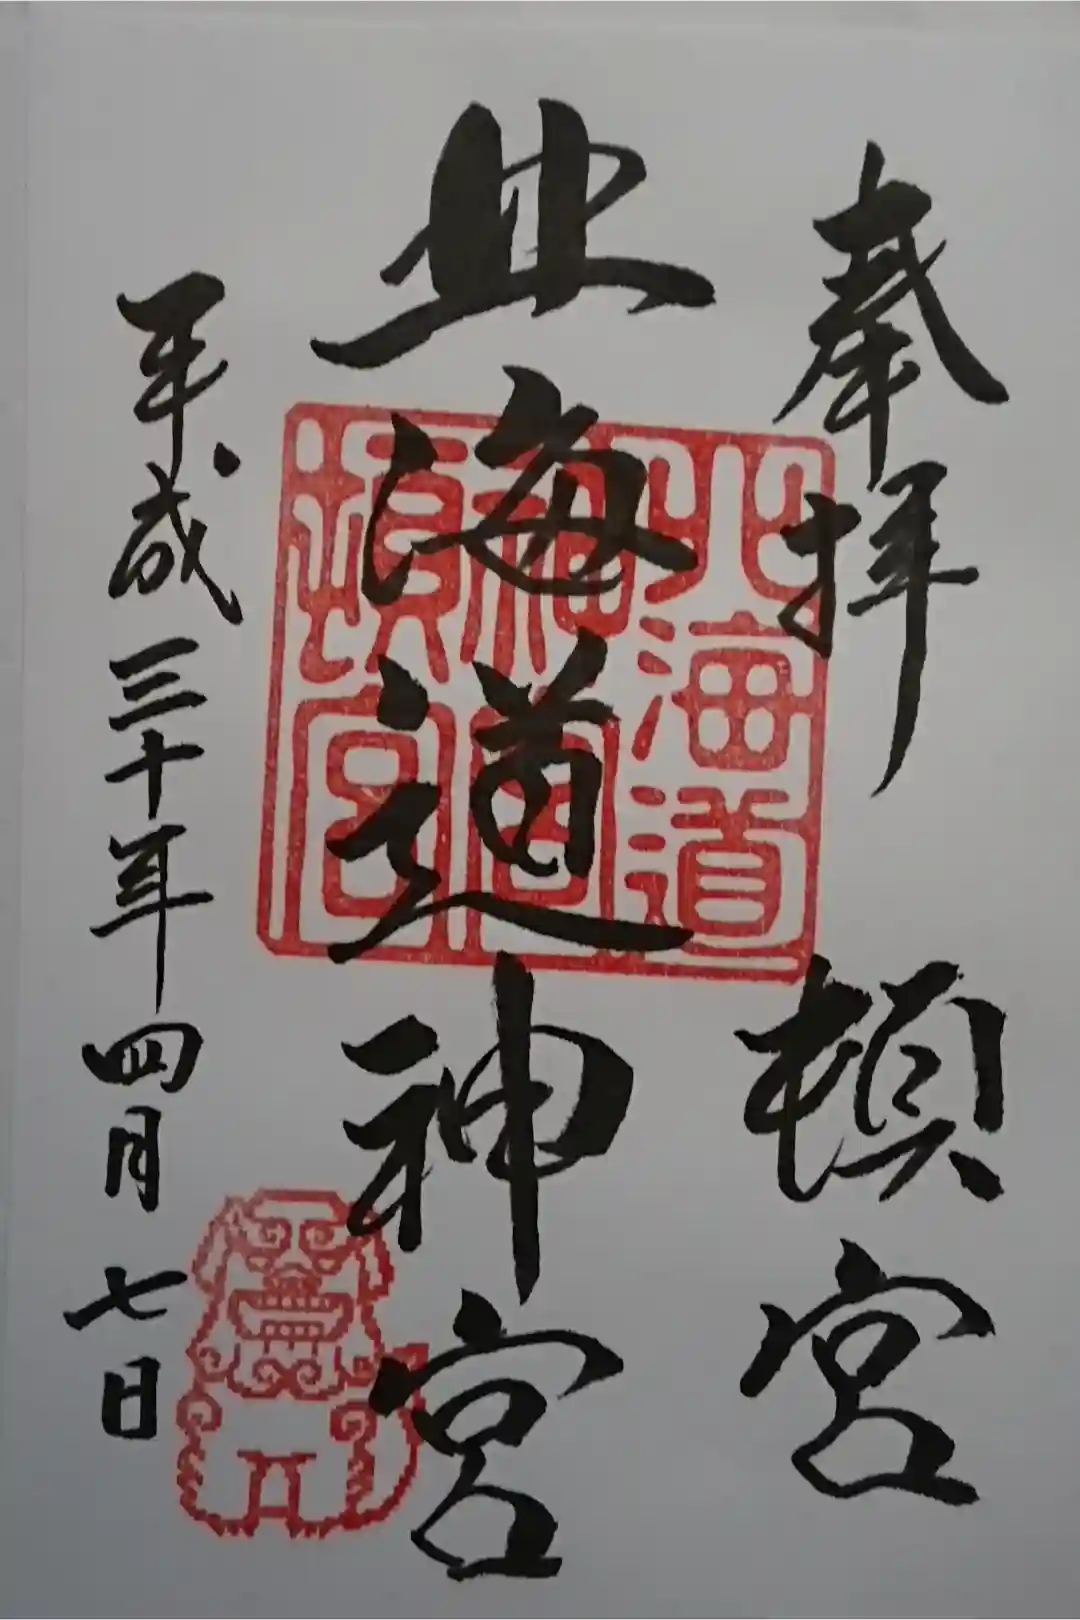 奉拝
頓宮
北海道神宮
平成三十年四月七日
北海道
神宮
頓宮